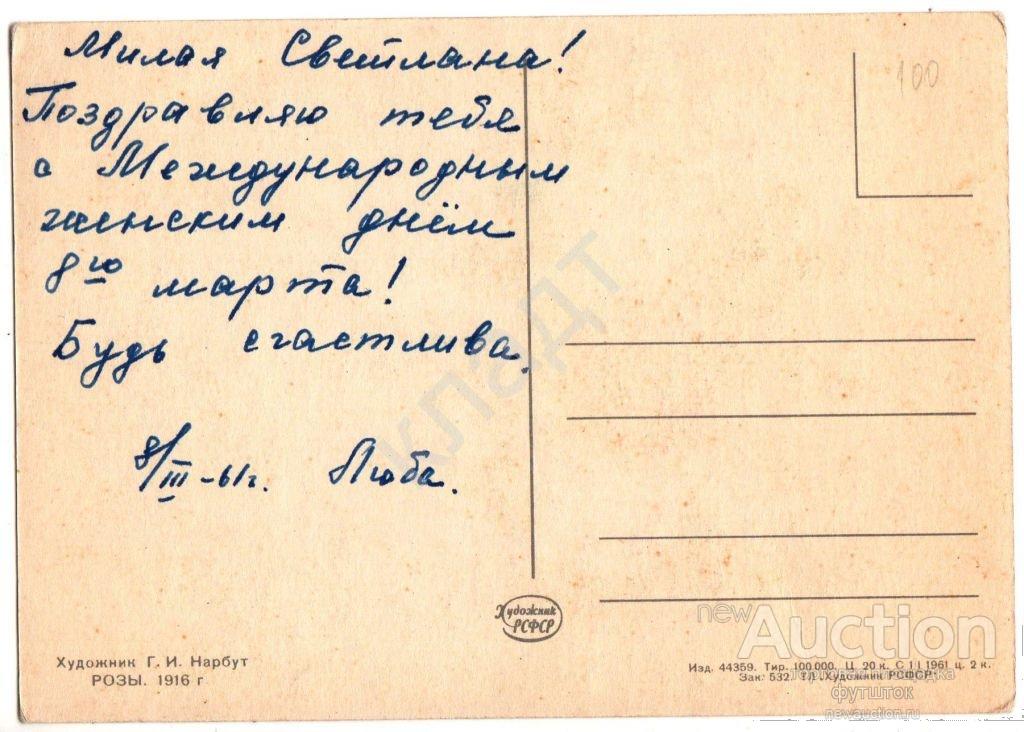 Милая Светлана!
Поздравляю тебя
с Международным
женским днём
8го марта!
Будь счастлива.
8/III-61г. Люба.
100
кладт
Художник
РСФСР
Художник Г. И. Нарбут
РОЗЫ. 1916 г
Изд. 44359. Тир. 100.000. Ц. 20 к. С 1 I 1961 ц. 2 к.
Зак. 532. Т/л „Художник РСФСР“
newAuction
футшток
newauction.ru